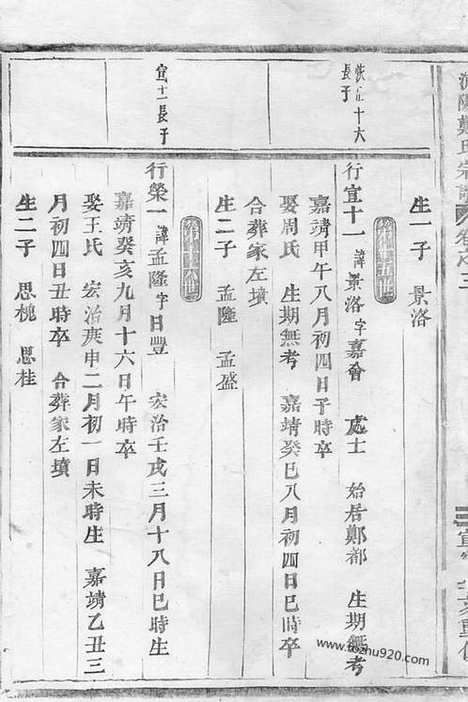 生一子 景洛
行宜十一 諱景洛字嘉會 處士 始居鄭都 生期無考
嘉靖甲午八月初四日子時卒
娶周氏 生期無考 嘉靖癸巳八月初四日巳時卒
合葬家左墳
生二子 孟隆 孟盛
宜十一長子
行榮一 諱孟隆字日豐 宏治壬戌三月十八日巳時生
嘉靖癸亥九月十六日午時卒
娶王氏 宏治庚申二月初一日未時生 嘉靖乙丑三
月初四日丑時卒 合葬家左墳
生二子 思槐 思桂
www.fozhu920.com